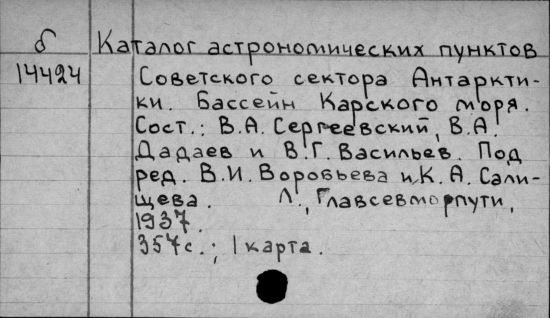 б Каталог астрономических пунктов
14424 Советского сектора Антаркти-
ки. Бассейн Карского моря.
Сост.: В.А. Сергеевский, В.А.
Дадаев и В.Г. Васильев. Под
ред. В.И. Воробьева и К.А. Сали-
щева. Л., Главсевморпути,
1937.
357с.; 1 карта.